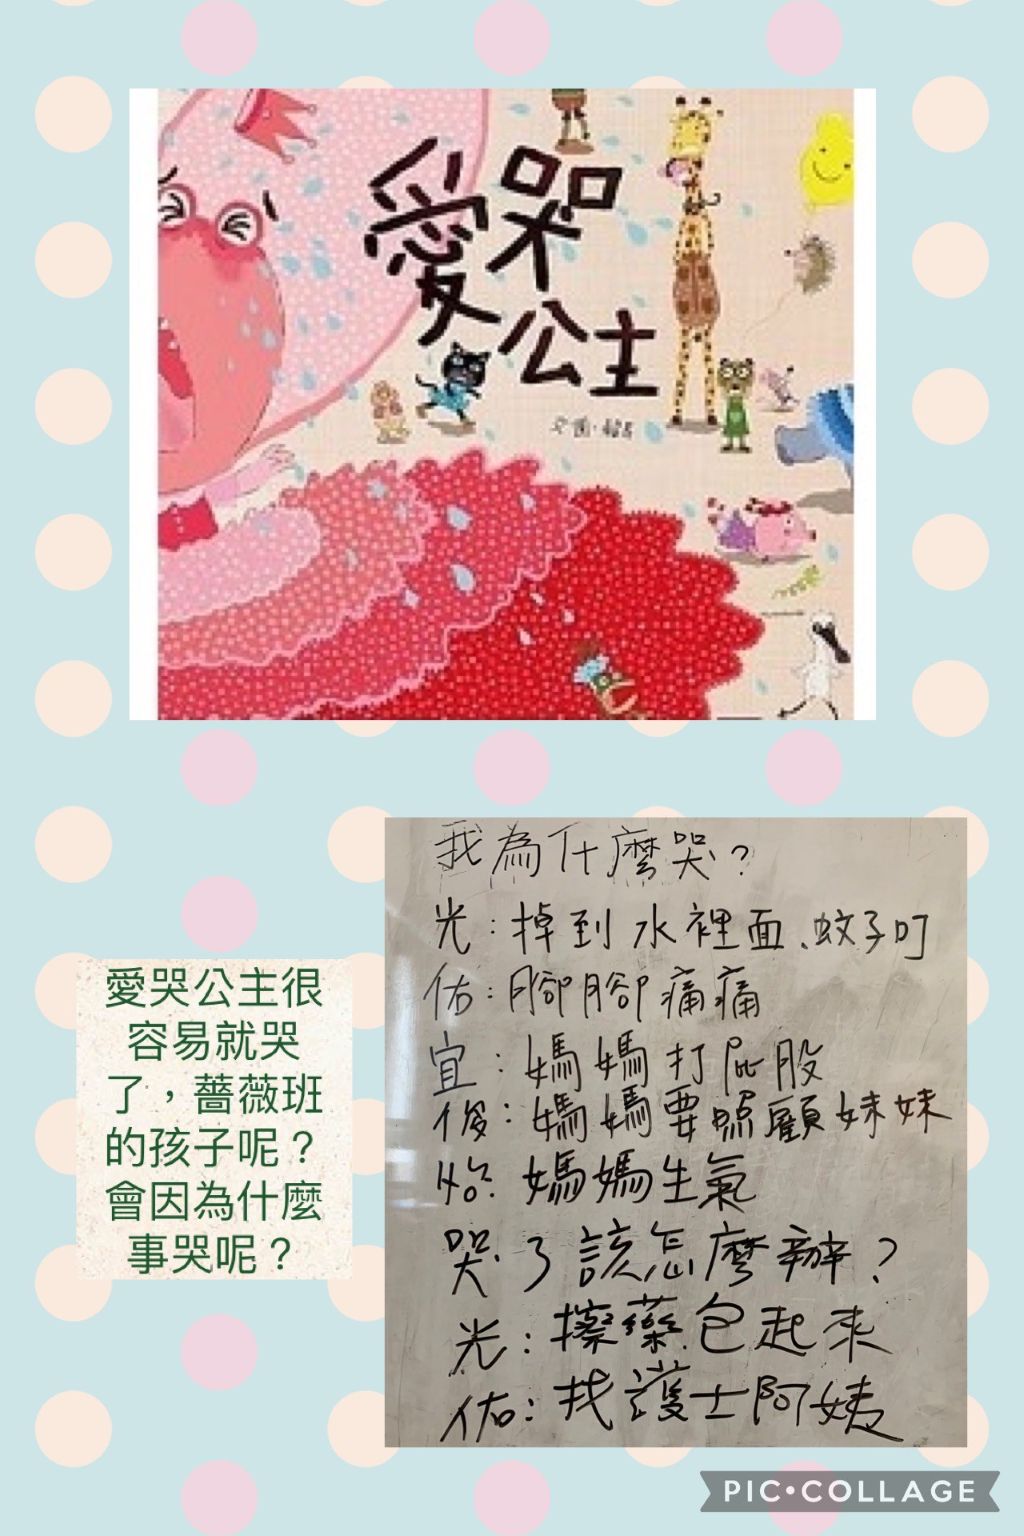 愛哭
公主
文・圖・賴馬
愛哭公主很
容易就哭
了，薔薇班
的孩子呢？
會因為什麼
事哭呢？
我為什麼哭？
光：掉到水裡面、蚊子叮
佑：腳腳痛痛
宜：媽媽打屁股
俊：媽媽要照顧妹妹
怡：媽媽生氣
哭了該怎麼辦？
光：擦藥包起來
佑：找護士阿姨
PIC•COLLAGE